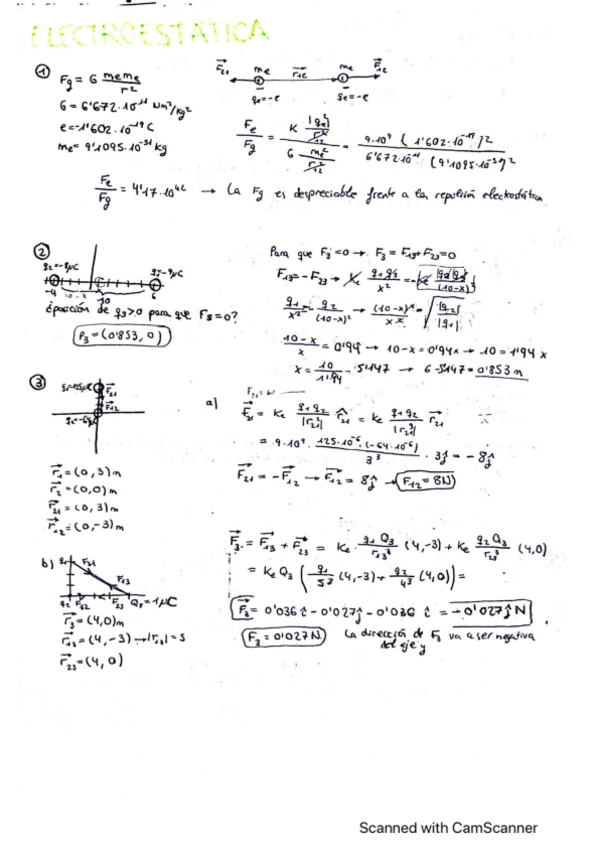 ELECTROESTÁTICA
① Fg = G meme / r²
G = 6'672·10⁻¹¹ Nm²/kg²
e = -1'602·10⁻¹⁹ C
me = 9'1095·10⁻³¹ kg
F₂₁ me r₁₂ me F₁₂
qe=-e qe=-e
Fe/Fg = K |qe²|/r₁₂² / G me²/r₁₂² = 9·10⁹ (1'602·10⁻¹⁹)² / 6'672·10⁻¹¹ (9'1095·10⁻³¹)²
Fe/Fg = 4'17·10⁴² → La Fg es despreciable frente a la repulsión electrostática
②
-4 10-x 10 6
¿posición de q₃>0 para que F₃=0?
P₃ = (0'853, 0)
Para que F₃=0 → F₃ = F₁₃+F₂₃=0
F₁₃=-F₂₃ →
q₁/x² = q₂/(10-x)² → (10-x)²/x² = √|q₂|/|q₁|
10-x/x = 0'94 → 10-x = 0'94x → 10 = 1'94 x
x = 10/1'94 = 5'147 → 6-5'147 = 0'853 m
③
r₁ = (0, 3) m
r₂ = (0,0) m
r₂₁ = (0, 3) m
r₁₂ = (0,-3) m
a)
F₂₁ = Ke q₁q₂/|r₂₁²| r̂₂₁ = Ke q₁q₂/|r₂₁³| r₂₁
= 9·10⁹ · 125·10⁻⁶·(-64·10⁻⁶)/3³ · 3ĵ = -8ĵ
F₂₁ = -F₁₂ → F₁₂ = 8ĵ → F₁₂ = 8N
b) q₁ F₂₁
F₁₃
q₂ F₁₂ F₂₃ Q₃=1μC
r₃ = (4,0)m
r₁₃ = (4,-3) → |r₁₃| = 5
r₂₃ = (4, 0)
F₃ = F₁₃ + F₂₃ = Ke · q₁Q₃/r₁₃³ (4,-3) + Ke q₂Q₃/r₂₃³ (4,0)
= KeQ₃ (q₁/5³ (4,-3) + q₂/4³ (4,0)) =
F₃ = 0'036 î - 0'027ĵ - 0'036 î = -0'027ĵ N
F₃ = 0'027N La dirección de F₃ va a ser negativa
del eje y
Scanned with CamScanner